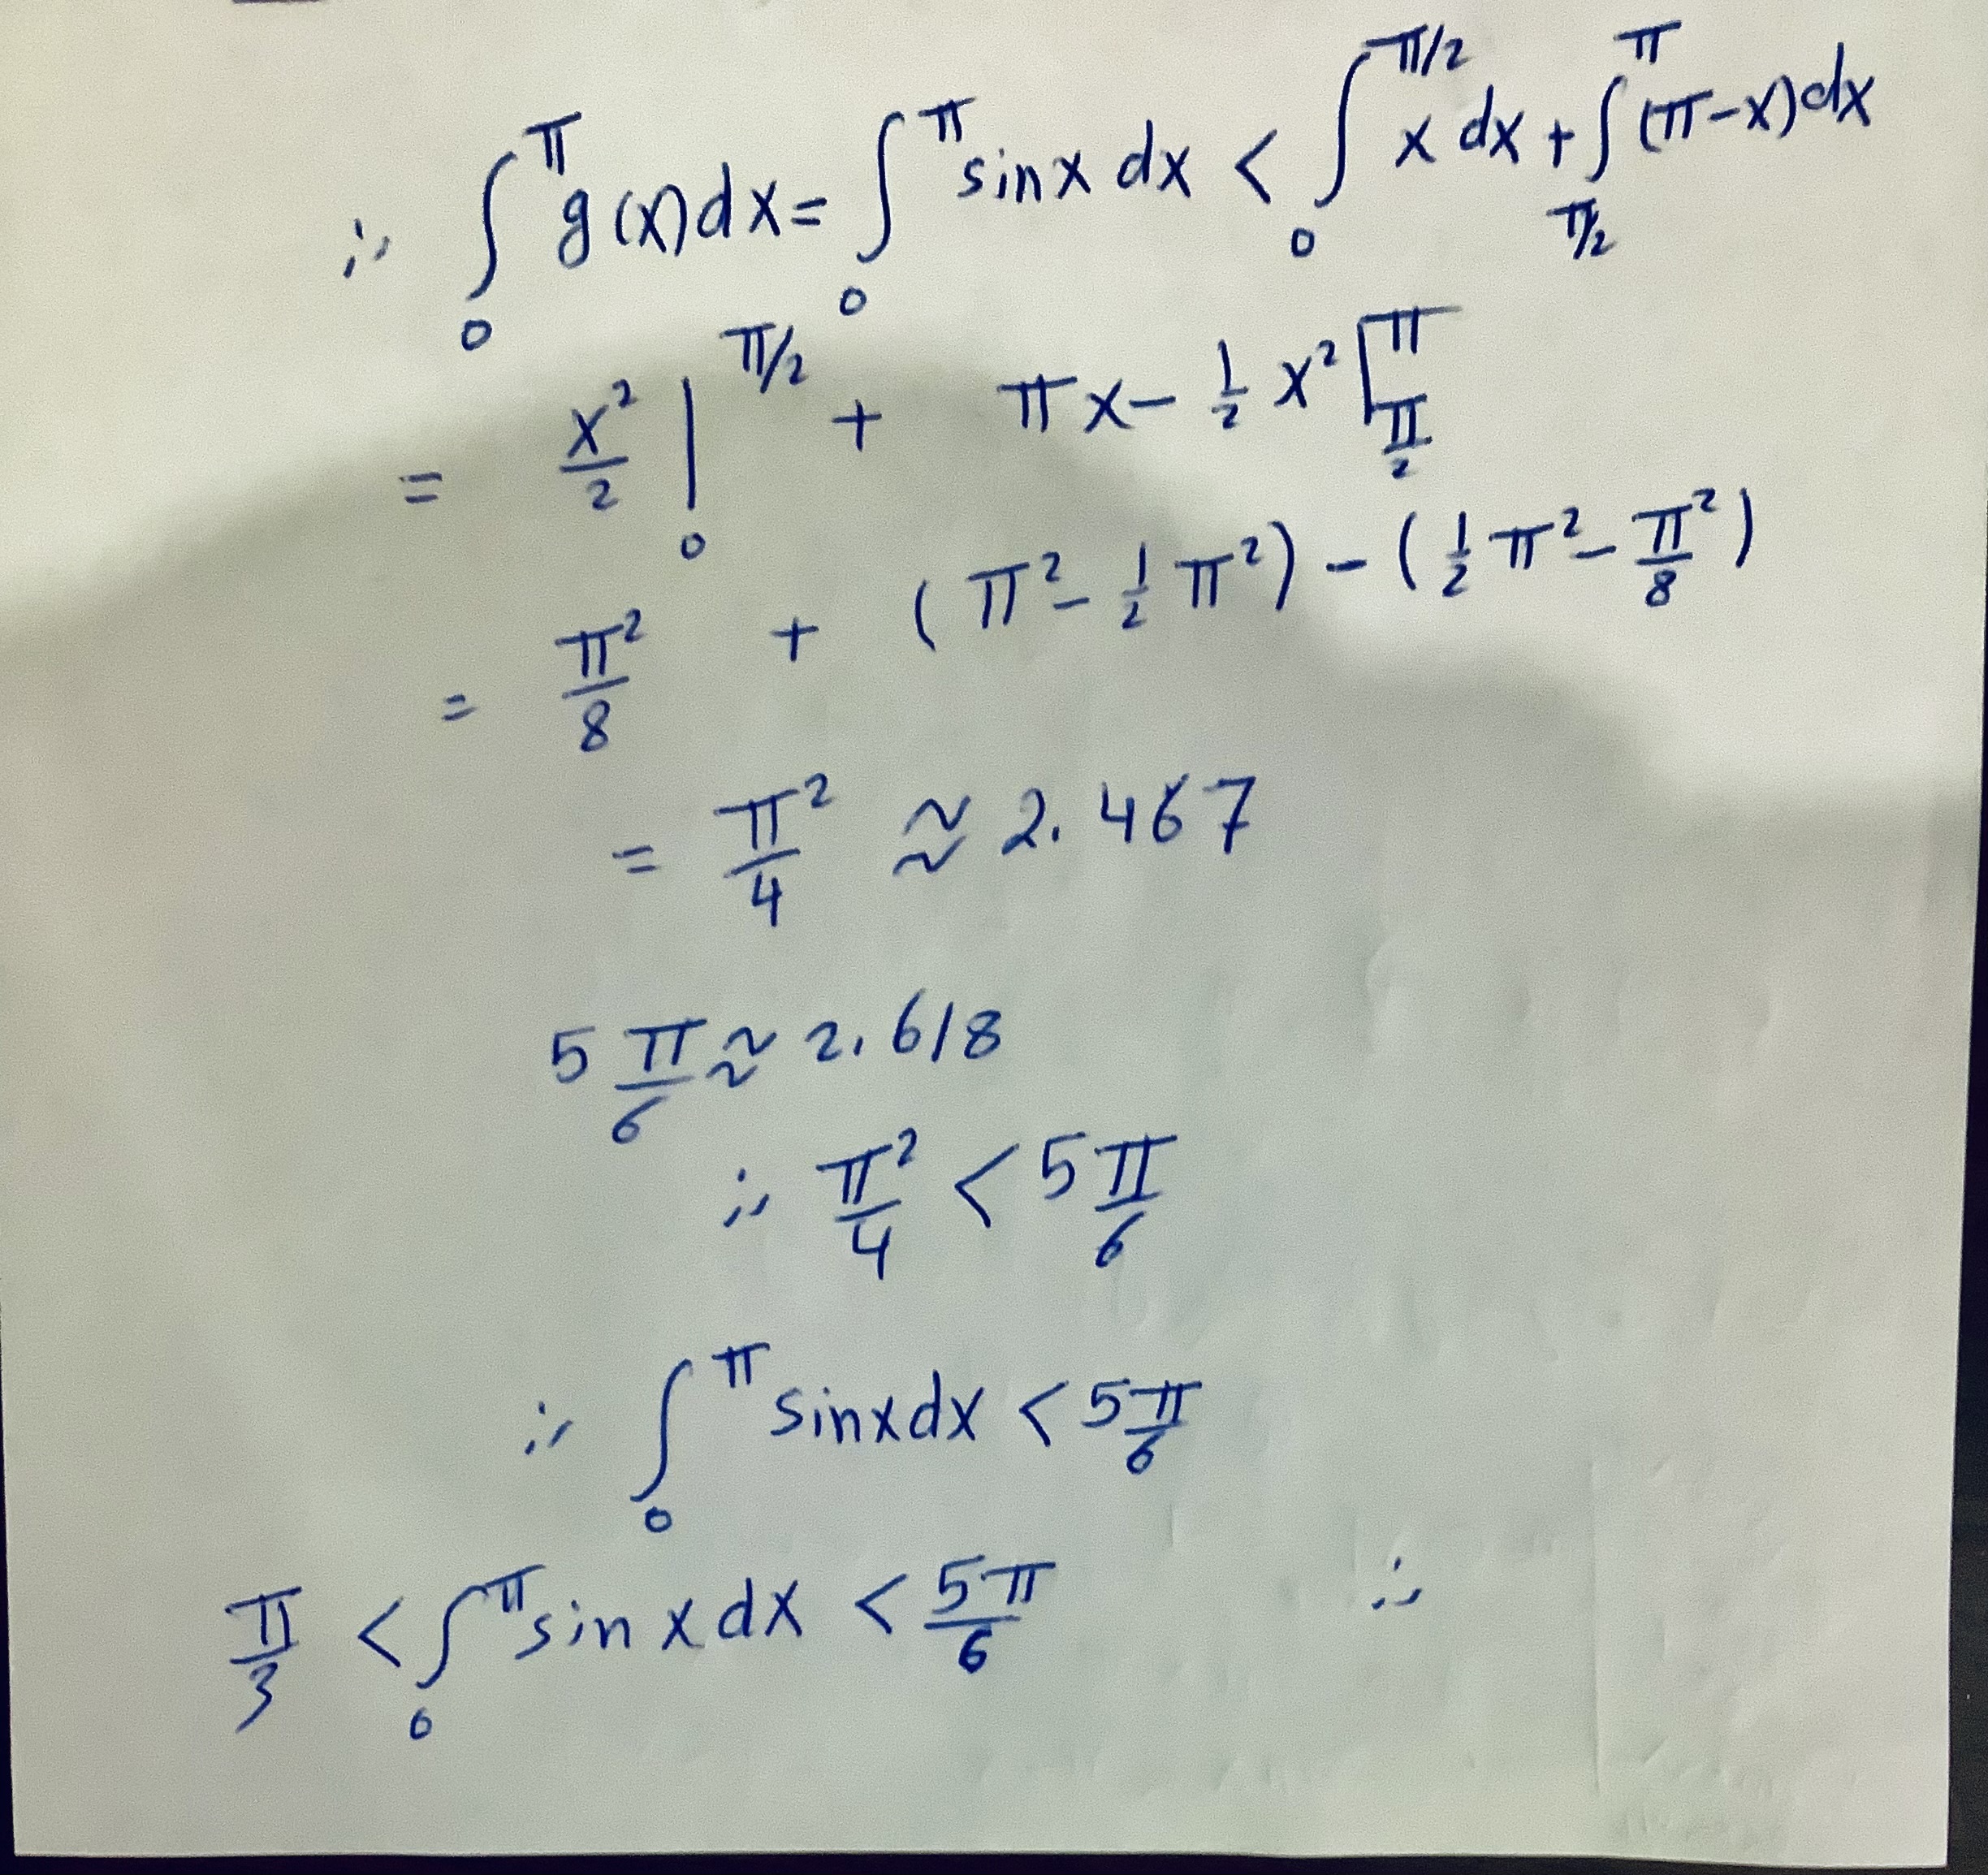 ∴ ∫₀^π g(x)dx = ∫₀^π sinx dx < ∫₀^{π/2} x dx + ∫_{π/2}^π (π-x)dx
= x²/2 |₀^{π/2} + πx - ½ x² [_{π/2}^π
= π²/8 + (π² - ½π²) - (½π² - π²/8)
= π²/4 ≈ 2.467
5π/6 ≈ 2.618
∴ π²/4 < 5π/6
∴ ∫₀^π sinxdx < 5π/6
π/3 < ∫₀^π sinxdx < 5π/6 ∴